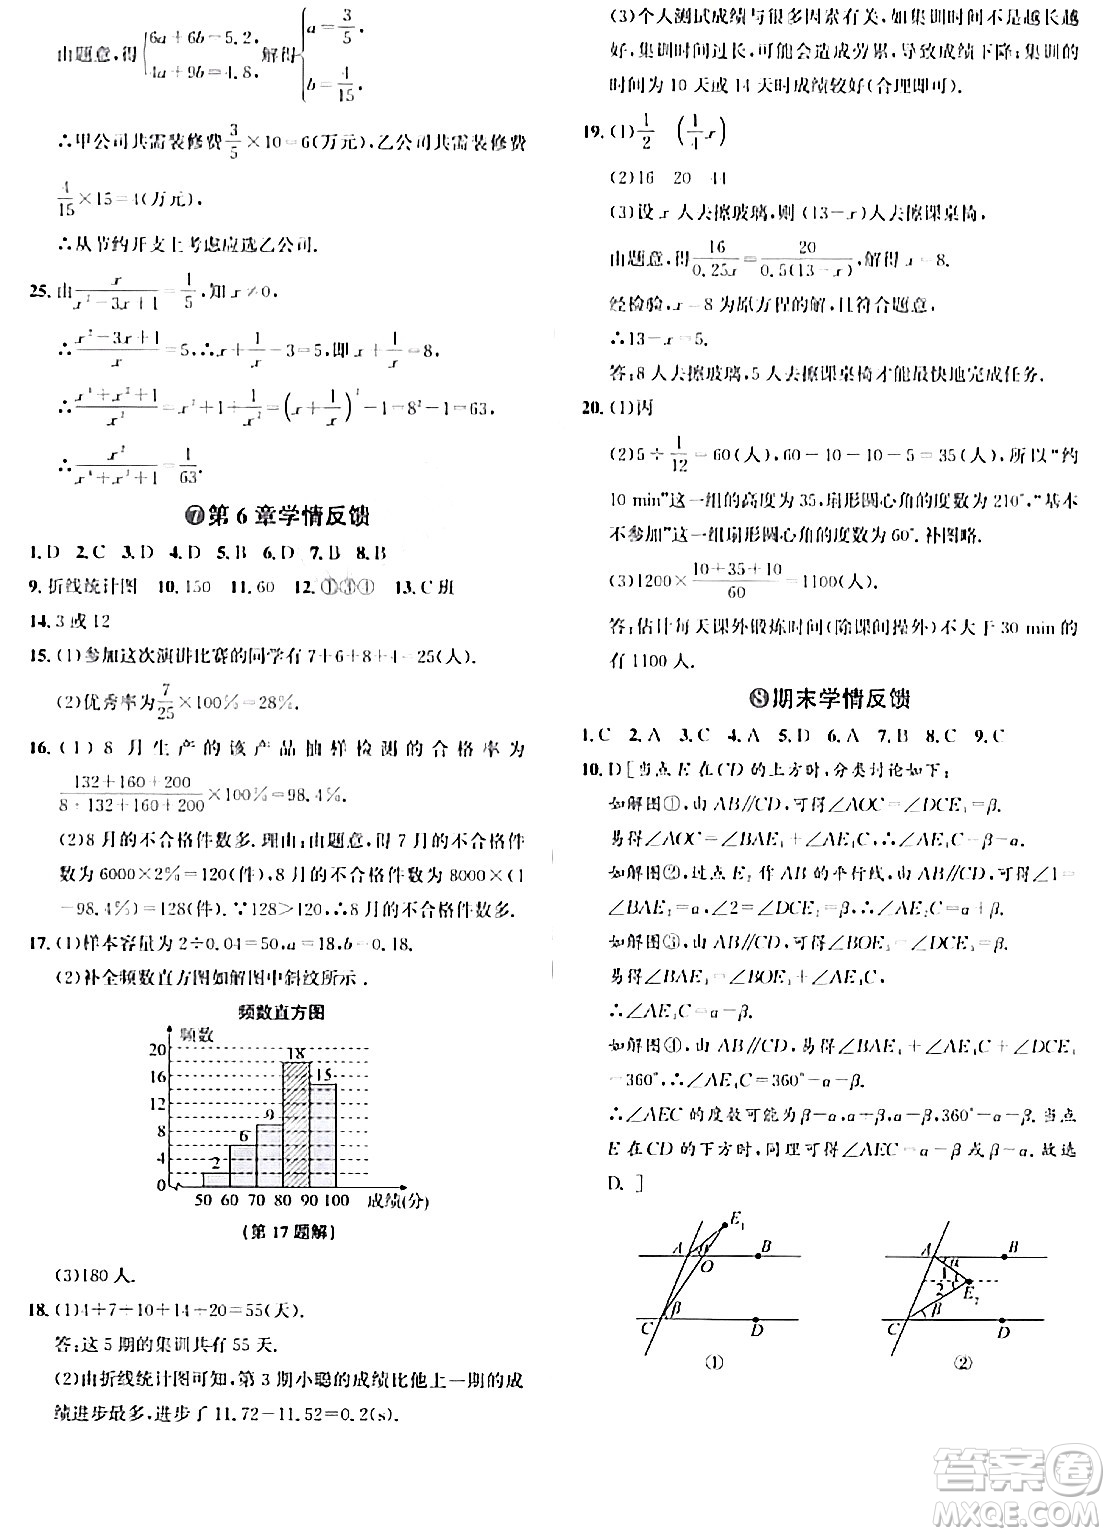 由题意,得{6a+6b=5.2, 4a+9b=4.8, 解得{a=3/5, b=4/15.
∴甲公司共需装修费3/5×10=6(万元),乙公司共需装修费
4/15×15=4(万元),
∴从节约开支上考虑应选乙公司.
25.由x/(x²-3x+1)=1/5,知x≠0,
∴(x²-3x+1)/x=5,∴x+1/x-3=5,即x+1/x=8,
∴(x⁴+x²+1)/x²=x²+1+1/x²=(x+1/x)²-1=8²-1=63,
∴x²/(x⁴+x²+1)=1/63.
⑦第6章学情反馈
1.D 2.C 3.D 4.D 5.B 6.D 7.B 8.B
9.折线统计图 10.150 11.60 12.①③④ 13.C班
14.3或12
15.(1)参加这次演讲比赛的同学有7+6+8+4=25(人).
(2)优秀率为7/25×100%=28%.
16.(1)8月生产的该产品抽样检测的合格率为
(132+160+200)/(8+132+160+200)×100%=98.4%.
(2)8月的不合格件数多.理由:由题意,得7月的不合格件
数为6000×2%=120(件),8月的不合格件数为8000×(1
-98.4%)=128(件).∵128>120,∴8月的不合格件数多.
17.(1)样本容量为2÷0.04=50,a=18,b=0.18.
(2)补全频数直方图如解图中斜纹所示.
频数直方图
频数
20
16
12
8
4
0
2 6 9 18 15
50 60 70 80 90 100 成绩(分)
(第17题解)
(3)180人.
18.(1)4+7+10+14+20=55(天).
答:这5期的集训共有55天.
(2)由折线统计图可知,第3期小聪的成绩比他上一期的成
绩进步最多,进步了11.72-11.52=0.2(s).
(3)个人测试成绩与很多因素有关,如集训时间不是越长越
好,集训时间过长,可能会造成劳累,导致成绩下降;集训的
时间为10天或14天时成绩较好(合理即可).
19.(1)1/2 (1/4x)
(2)16 20 44
(3)设x人去擦玻璃,则(13-x)人去擦课桌椅,
由题意,得16/(0.25x)=20/(0.5(13-x)),解得x=8.
经检验,x=8为原方程的解,且符合题意,
∴13-x=5.
答:8人去擦玻璃,5人去擦课桌椅才能最快地完成任务.
20.(1)丙
(2)5÷1/12=60(人),60-10-10-5=35(人),所以“约
10 min”这一组的高度为35,扇形圆心角的度数为210°,“基本
不参加”这一组扇形圆心角的度数为60°.补图略.
(3)1200×(10+35+10)/60=1100(人).
答:估计每天课外锻炼时间(除课间操外)不大于30 min的
有1100人.
⑧期末学情反馈
1.C 2.A 3.C 4.A 5.D 6.A 7.B 8.C 9.C
10.D[当点E在CD的上方时,分类讨论如下:
如解图①,由AB∥CD,可得∠AOC=∠DCE₁=β.
易得∠AOC=∠BAE₁+∠AE₁C,∴∠AE₁C=β-α.
如解图②,过点E₂作AB的平行线,由AB∥CD,可得∠1=
∠BAE₂=α,∠2=∠DCE₂=β,∴∠AE₂C=α+β.
如解图③,由AB∥CD,可得∠BOE₃=∠DCE₃=β.
易得∠BAE₃=∠BOE₃+∠AE₃C,
∴∠AE₃C=α-β.
如解图④,由AB∥CD,可得∠BAE₄+∠AE₄C+∠DCE₄
=360°,∴∠AE₄C=360°-α-β.
∴∠AEC的度数可能为β-α,α-β,α+β,360°-α-β.当点
E在CD的下方时,同理可得∠AEC=α-β或β-α.故选
D.]
E₁
A α B
O
C β D
①
A α B
1
2
E₂
C β D
②
答案圈
MXQE.COM